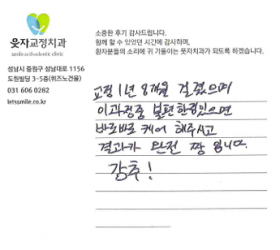 웃자교정치과
smile orthodontic clinic
성남시 중원구 성남대로 1156
도원빌딩 3-5층(위즈노건물)
031 606 0282
letsmile.co.kr
소중한 후기 감사드립니다.
함께 할 수 있었던 시간에 감사하며,
환자분들의 소리에 귀 기울이는 웃자치과가 되도록 하겠습니다.
교정 1년 8개월 걸렸으며
이과정중 불편한점있으면
바로바로 케어 해주시고
결과가 완전 짱 입니다.
강추!